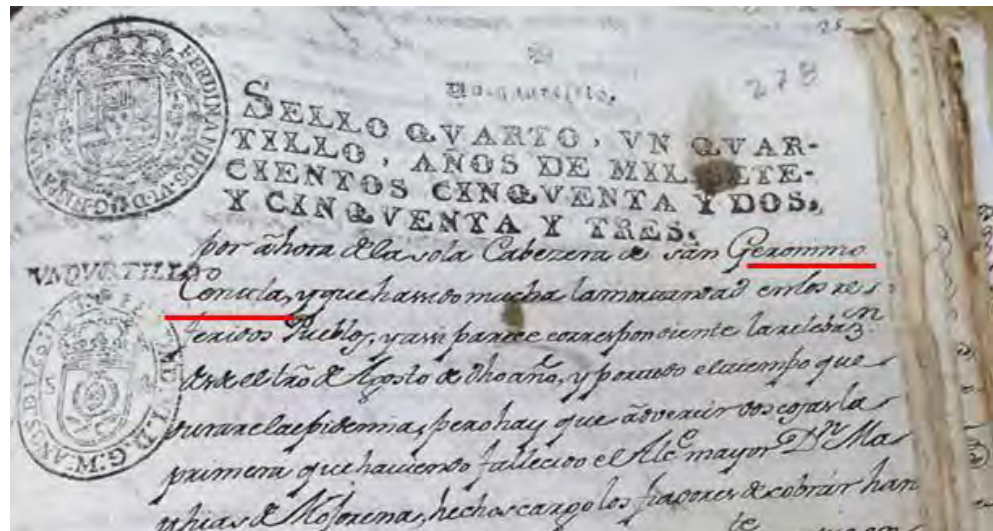 278
Un quartillo.
SELLO QVARTO, VN QVAR-
TILLO, AÑOS DE MIL SETE-
CIENTOS CINQVENTA Y DOS,
Y CINQVENTA Y TRES.
por ahora de la sola Cabezera de san Geronimo
VNQVRTILLO
y que ha sido mucha la mortandad en los re-
feridos Pueblos, y assi parece correspondiente la relebazn.
desde el trõ de Agosto de dho año, y por todo el tiempo que
durare la epidemia, pero hay que advertir dos cosas la
primera que haviendo fallecido el Alce. mayor Dn. Ma-
thias de hechos cargo los fiadores de cobrar han